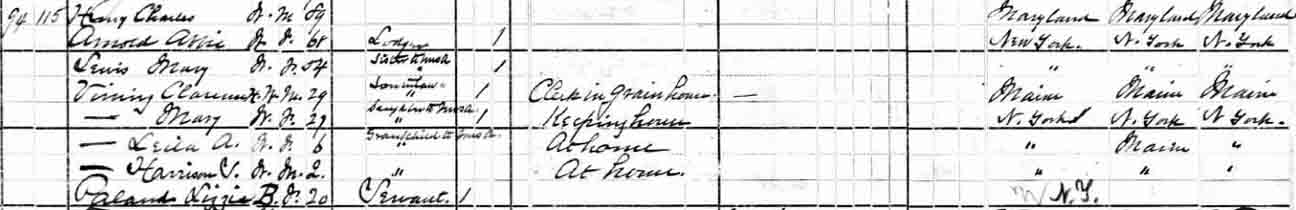 94 115 Henry Charles W. M. 59 Maryland Maryland Maryland
Arnold Abbie W. F. 68 Lodger 1 New York. N. York N. York
Lewis Mary W. F. 54 Sister to 1 " " "
Vining Clarence W. M. 29 Son in law 1 Clerk in Grain house — Maine Maine Maine
— Mary W. F. 29 Daughter to 1 Keeping house N. York N. York N York.
— Leila A. W. F. 6 Grandchild to At home " Maine "
— Harrison V. W. M. 2. " At home. " " "
Lizzie B. F. 20 Servant. 1 N. Y.